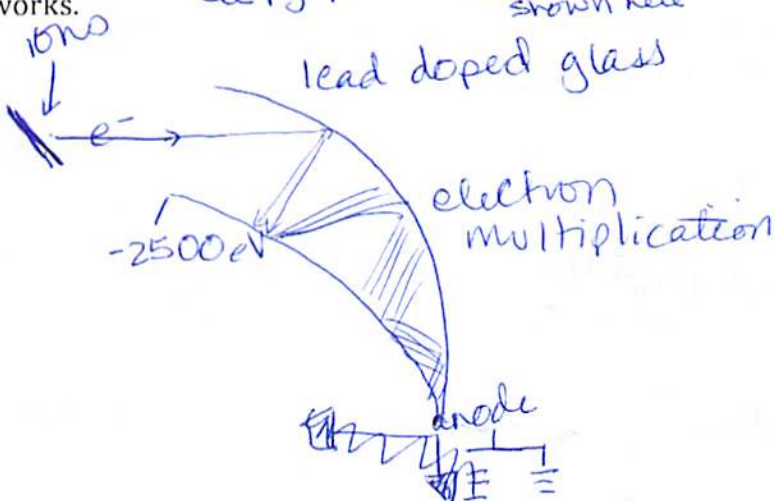 works.
shown here
ions
lead doped glass
e⁻
electron
multiplication
-2500eV
anode